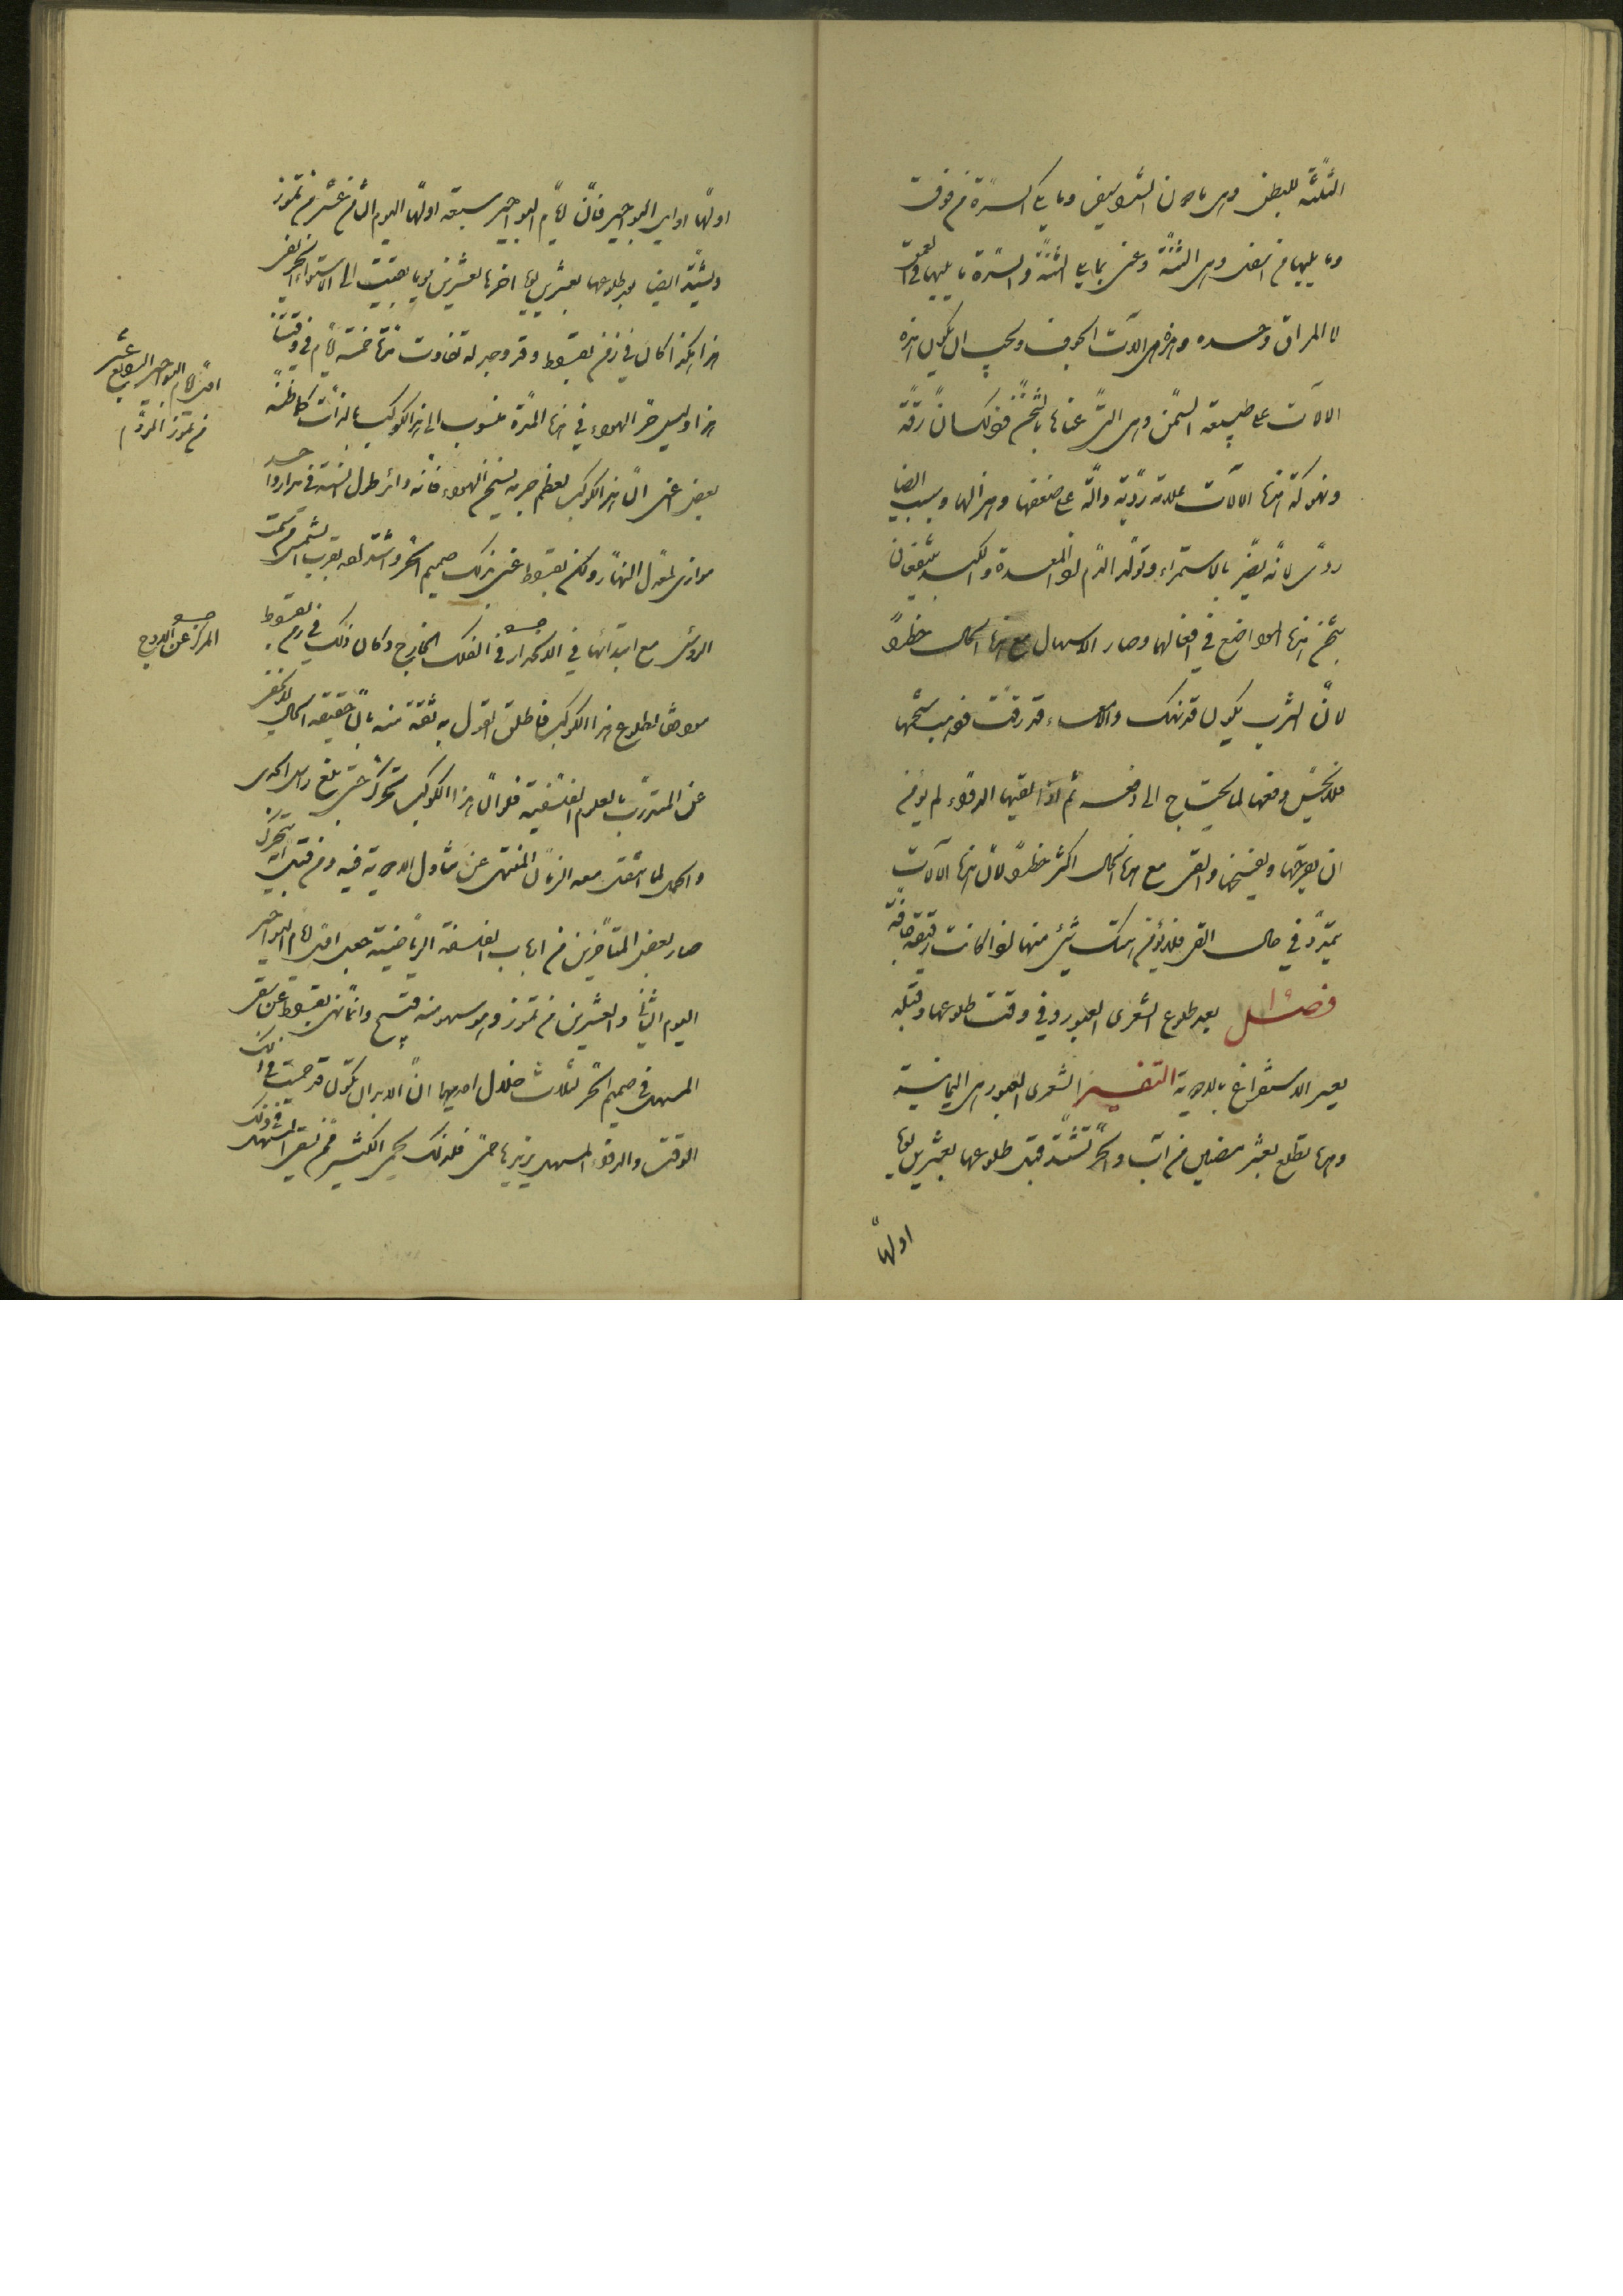 الثلثة للبطن وهى ما دون الشراسيف وما يلى السرة من فوق
وما يليها من اسفل وهى الثنة وعنى بما يلى الثنة والسرة ما يليهما فى العمق
لا المراق وحده وهذه هى آلات الجوف ويجب ان يكون هذه
الآلات على طبيعة السمن وهى التى عناها بالثخن فذلك ان رقة
ونهوكة هذه الآلات علامة ردية دالة على ضعفها وهزالها وسبب ايضا
ردى لانه يضر بالاستمراء وتولد الدم اذ المعدة والكبد ينتفعان
بثخن هذه المواضع فى افعالهما وصار الاسهال مع هذه الحال خطرا
لان الثرب يكون قد نهك والامعاء قد رقت فذهب شحمها
فلا يحسن دفعها لما يحتاج الى دفعه ثم اذا لقيها الدواء لم يؤمن
ان يقرحها ويفسخها والقى مع هذه الحال اكثر خطرا لان هذه الآلات
يتمدد فى حال القى فلا يؤمن هتك شئ منها اذا كانت رقيقة جافة
فصل بعد طلوع الشعرى العبور وفى وقت طلوعها وقبله
يعسر الاستفراغ بالادوية التفسير الشعرى العبور هى اليمانية
وهذه تطلع لعشر مضين من آب والحر تشتد قبل طلوعها بعشرين يوما
اولها
اولها اوايل البواحير فان ايام البواحير سبعة اولها اليوم الثامن عشر من تموز
ويشتد ايضا بعد طلوعها بعشرين يوما اخرها لعشرين يوما بقيت الى الاستواء الخريفى
هذا هكذا كان فى زمن بقراط وقد وجد له تفاوت منها خمسة ايام فى وقتنا
هذا وليس حر الهواء فى هذه المدة منسوب الى هذا الكوكب بالذات كما ظنه
بعض اعنى ان هذا الكوكب لعظم جرمه يسخن الهواء فانه دائر طول السنة فى مدار واحد
موازى لمعدل النهار ولكن بقراط عنى بذلك صميم الحر واشتداده بقرب الشمس من سمت
الرؤس مع ابتدائها فى الانحدار فى الفلك الخارج وكان ذلك فى زمن بقراط
موافقا لطلوع هذا الكوكب فاطلق القول به ثقة منه بان حقيقة الحال لا تخفى
عن المتدرب بالعلوم الفلسفية فلو ان هذا الكوكب تحرك حتى بلغ راس الجدى
والحمل لما انتقل معه الزمان المنهى عن تناول الادوية فيه ومن قبل انه يتحرك
صار بعض المتاخرين من ارباب الفلسفة الرياضية جعل اول ايام البواحير
اليوم الثانى والعشرين من تموز وهو سهو منه قبيح وانما نهى بقراط عن سقى
المسهل فى صميم الحر لثلاث خلال احديها ان الابدان يكون قد حميت فى ذلك
الوقت والدواء المسهل يزيدها حمى فلذلك يحم الكثير ممن سقى المسهل فى ذلك
اول ايام البواحير السابع عشر
من تموز الروم
المركز عن البروج